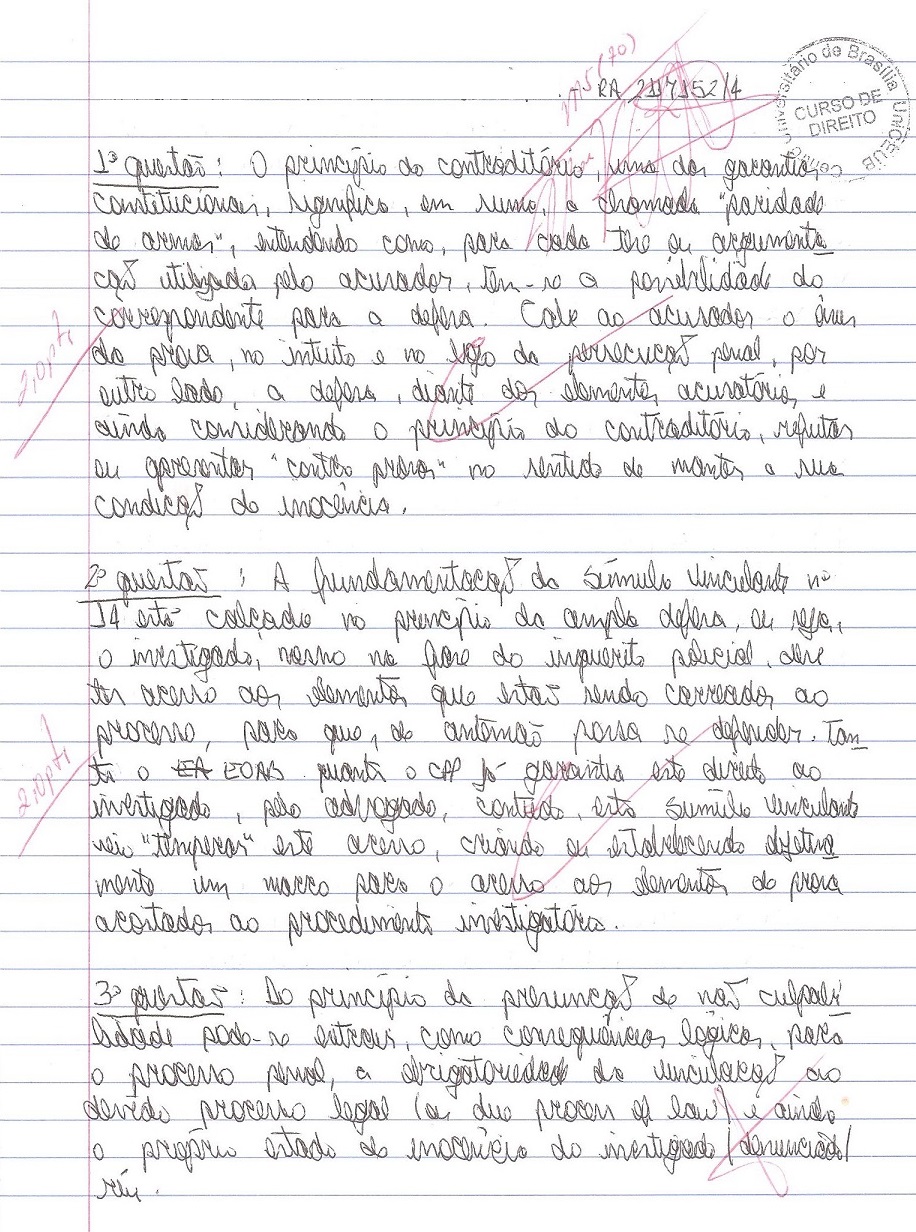 RA 2117152/4
Centro Universitário de Brasília UniCEUB
CURSO DE
DIREITO
1ª questão: O princípio do contraditório, uma das garantias
constitucionais, significa, em suma, a chamada "paridade
de armas", entendendo como, para cada tese ou argumenta
ção utilizada pelo acusador, tem-se a possibilidade do
correspondente para a defesa. Cabe ao acusador o ônus
da prova, no intuito e no bojo da persecução penal, por
outro lado, a defesa, diante dos elementos acusatórios e
ainda considerando o princípio do contraditório, refutar
ou apresentar "contra provas" no sentido de manter a sua
condição de inocência.
2,0 pts
2ª questão: A fundamentação da súmula vinculante nº
14 está calçada no princípio da ampla defesa, ou seja,
o investigado, mesmo na fase do inquérito policial, deve
ter acesso aos elementos que estão sendo carreados ao
processo, para que, de antemão possa se defender. Tan
to o EOAB quanto o CPP já garantia este direito ao
investigado, pelo advogado, contudo, esta súmula vinculante
veio "temperar" este acesso, criando ou estabelecendo efetiva
mente um marco para o acesso aos elementos de prova
acostados ao procedimento investigatório.
2,0 pts
3ª questão: Do princípio da presunção de não culpabi
lidade pode-se extrair, como consequências lógicas, para
o processo penal, a obrigatoriedade da vinculação ao
devido processo legal (ou due process of law) e ainda
o próprio estado de inocência do investigado/denunciado/
réu.